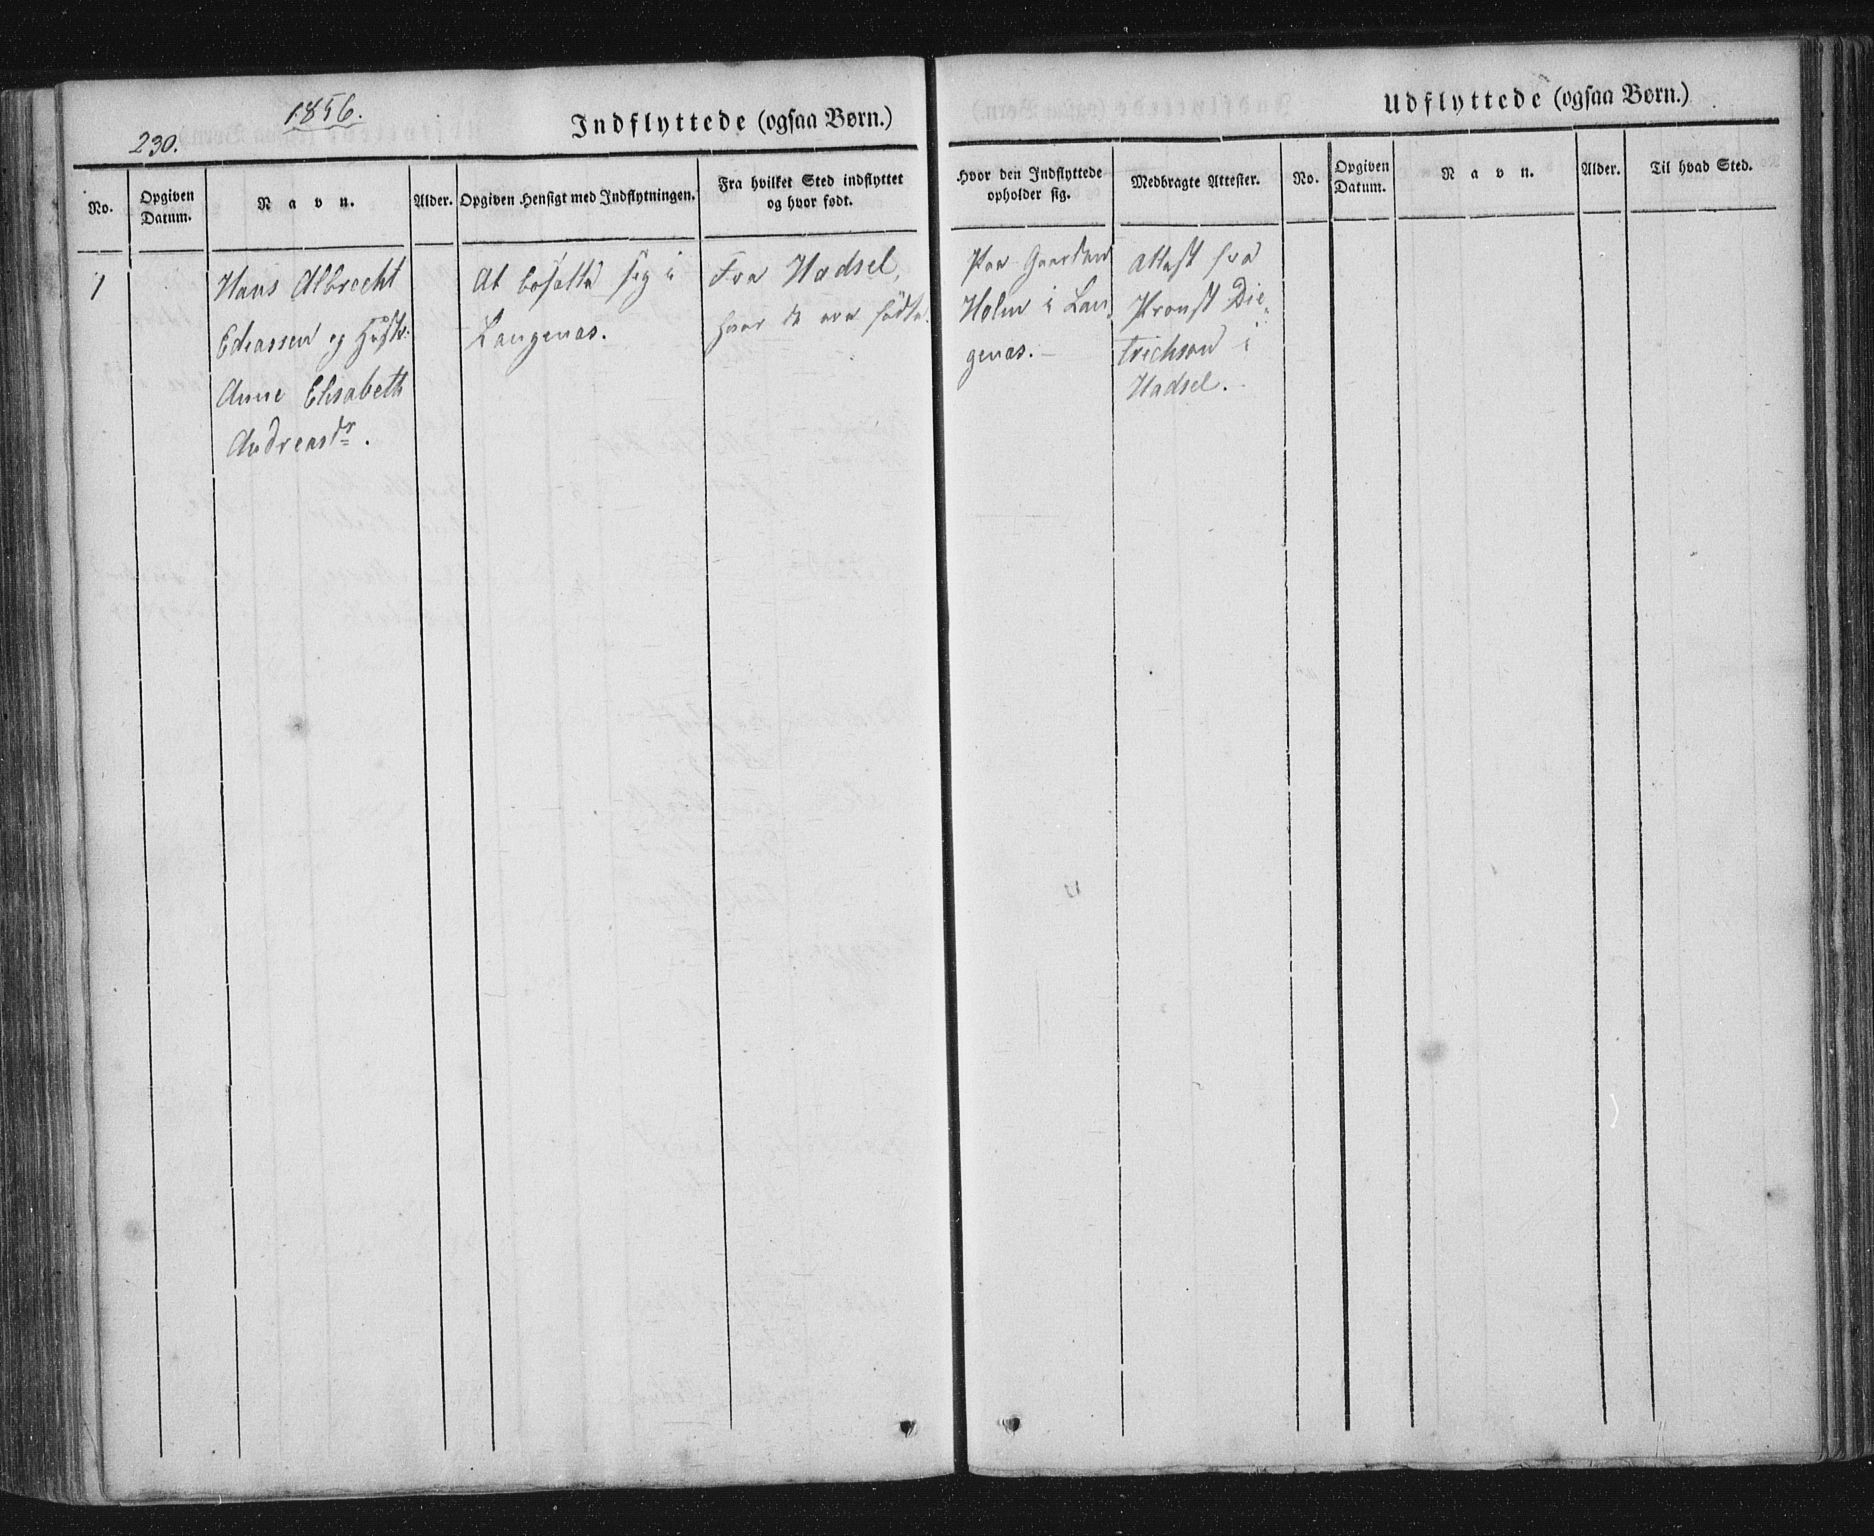 1856.
230.
Indflyttede (ogsaa Børn.)
No.
Opgiven
Datum.
Navn.
Alder.
Opgiven Hensigt med Indflytningen.
Fra hvilket Sted indflyttet
og hvor født.
1
Hans Albrecht
Ediassen og Hustr:
Anne Elisabeth
Andreasdr.
At bosætte sig i
Langenæs.
Fra Hadsel,
hvor de ere fødte.
Udflyttede (ogsaa Børn.)
Hvor den Indflyttede
opholder sig.
Medbragte Attester.
No.
Opgiven
Datum.
Navn.
Alder.
Til hvad Sted.
Paa Gaarden
Holm i Lan-
genæs.
Attest fra
Provst Die-
trichson i
Hadsel.